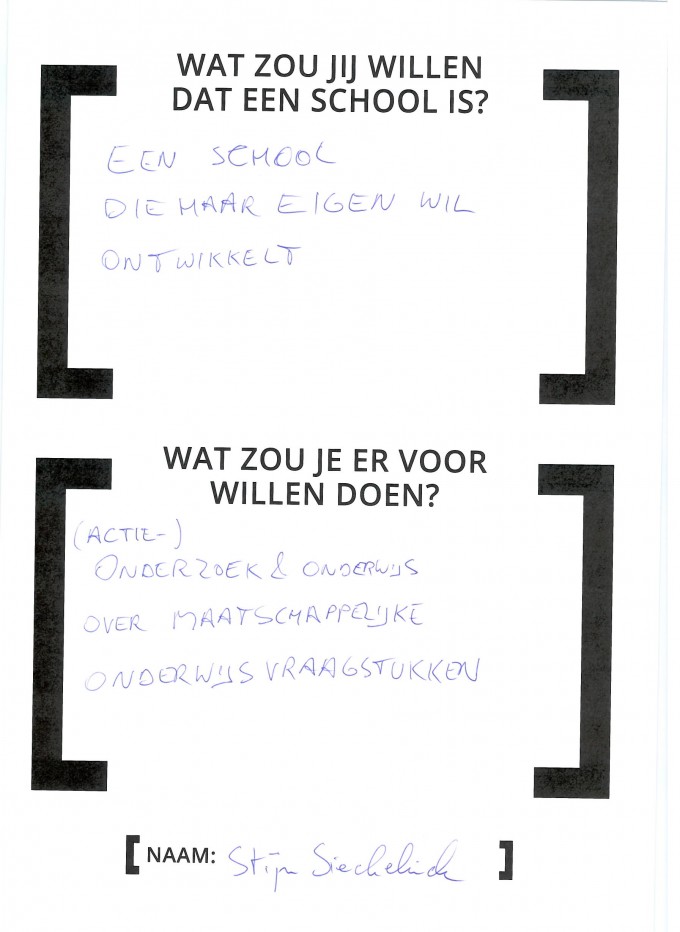 WAT ZOU JIJ WILLEN
DAT EEN SCHOOL IS?
EEN SCHOOL
DIE HAAR EIGEN WIL
ONTWIKKELT
WAT ZOU JE ER VOOR
WILLEN DOEN?
(ACTIE-)
ONDERZOEK & ONDERWIJS
OVER MAATSCHAPPELIJKE
ONDERWIJSVRAAGSTUKKEN
NAAM: Stijn Sieckelinck